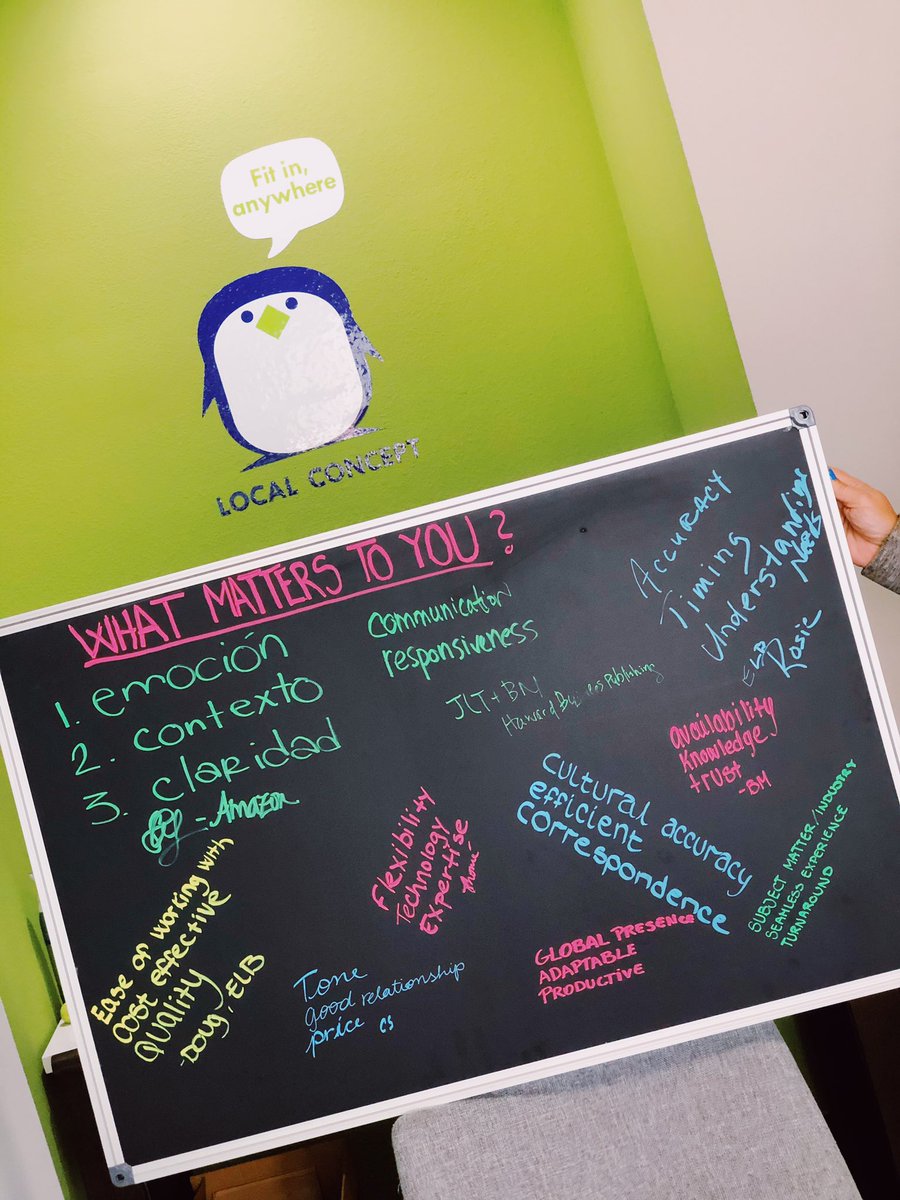 Fit in,
anywhere
LOCAL CONCEPT
WHAT MATTERS TO YOU?
1. emoción
2. contexto
3. claridad
- Amazon
communication
responsiveness
JLT + BM
Harvard Business Publishing
Accuracy
Timing
Understanding
Needs
ELB
Rosie
availability
Knowledge
trust
- BM
Flexibility
Technology
Expertise
cultural accuracy
efficient
correspondence
SUBJECT MATTER/INDUSTRY
SEAMLESS EXPERIENCE
TURNAROUND
Ease of working with
cost effective
Quality
- Doug, ELB
Tone
good relationship
price CS
GLOBAL PRESENCE
ADAPTABLE
PRODUCTIVE